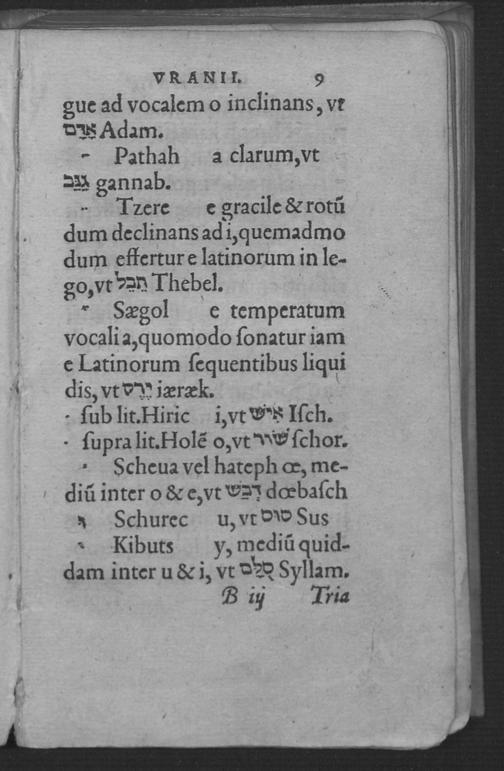 VRANII. 9
gue ad vocalem o inclinans, vt
אָדָם Adam.
Pathah a clarum, vt
גַּנַּב gannab.
Tzere e gracile & rotū
dum declinans ad i, quemadmo
dum effertur e latinorum in le-
go, vt תֵבֵל Thebel.
Sægol e temperatum
vocali a, quomodo ſonatur iam
e Latinorum ſequentibus liqui
dis, vt iæræk.
· ſub lit. Hiric i, vt אִישׁ Iſch.
· ſupra lit. Holē o, vt שׁוֹר ſchor.
Scheua vel hateph œ, me-
diū inter o & e, vt דְּבַשׁ dœbaſch
Schurec u, vt סוּס Sus
Kibuts y, mediū quid-
dam inter u & i, vt סֻלָּם Syllam.
B iij Tria